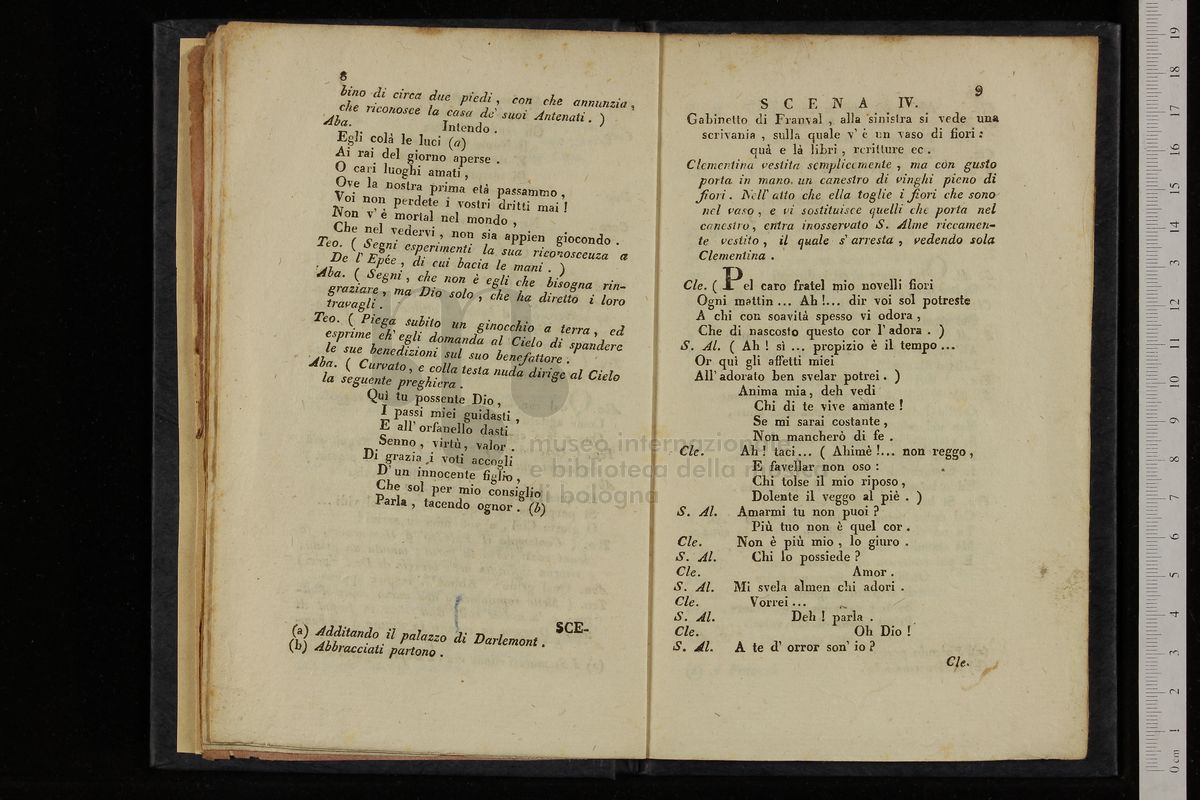 8
bino di circa due piedi, con che annunzia,
che riconosce la casa de' suoi Antenati. )
Aba. Intendo.
Egli colà le luci (a)
Ai rai del giorno aperse.
O cari luoghi amati,
Ove la nostra prima età passammo,
Voi non perdete i vostri dritti mai!
Non v' è mortal nel mondo,
Che nel vedervi, non sia appien giocondo.
Teo. ( Segni esperimenti la sua riconosceuza a
De l' Epée, di cui bacia le mani. )
Aba. ( Segni, che non è egli che bisogna rin-
graziare, ma Dio solo, che ha diretto i loro
travagli.
Teo. ( Piega subito un ginocchio a terra, ed
esprime ch' egli domanda al Cielo di spandere
le sue benedizioni sul suo benefattore.
Aba. ( Curvato, e colla testa nuda dirige al Cielo
la seguente preghiera.
Quì tu possente Dio,
I passi miei guidasti,
E all' orfanello dasti
Senno, virtù, valor.
Di grazia i voti accogli
D' un innocente figlio,
Che sol per mio consiglio
Parla, tacendo ognor. (b)
SCE-
(a) Additando il palazzo di Darlemont.
(b) Abbracciati partono.
9
SCENA IV.
Gabinetto di Franval, alla sinistra si vede una
scrivania, sulla quale v' è un vaso di fiori:
quà e là libri, rcritture ec.
Clementina vestita semplicemente, ma con gusto
porta in mano. un canestro di vinghi pieno di
fiori. Nell' atto che ella toglie i fiori che sono
nel vaso, e vi sostituisce quelli che porta nel
canestro, entra inosservato S. Alme riccamen-
te vestito, il quale s' arresta, vedendo sola
Clementina.
Cle. ( Pel caro fratel mio novelli fiori
Ogni mattin ... Ah!... dir voi sol potreste
A chi con soavità spesso vi odora,
Che di nascosto questo cor l' adora. )
S. Al. ( Ah! sì ... propizio è il tempo ...
Or quì gli affetti miei
All' adorato ben svelar potrei. )
Anima mia, deh vedi
Chi di te vive amante!
Se mi sarai costante,
Non mancherò di fe.
Cle. Ah! taci... ( Ahimè!... non reggo,
E favellar non oso:
Chi tolse il mio riposo,
Dolente il veggo al piè. )
S. Al. Amarmi tu non puoi?
Più tuo non è quel cor.
Cle. Non è più mio, lo giuro.
S. Al. Chi lo possiede?
Cle. Amor.
S. Al. Mi svela almen chi adori.
Cle. Vorrei ...
S. Al. Deh! parla.
Cle. Oh Dio!
S. Al. A te d' orror son' io?
Cle.
museo internazionale
e biblioteca della musica
di bologna
0 cm 1 2 3 4 5 6 7 8 9 10 11 12 13 14 15 16 17 18 19